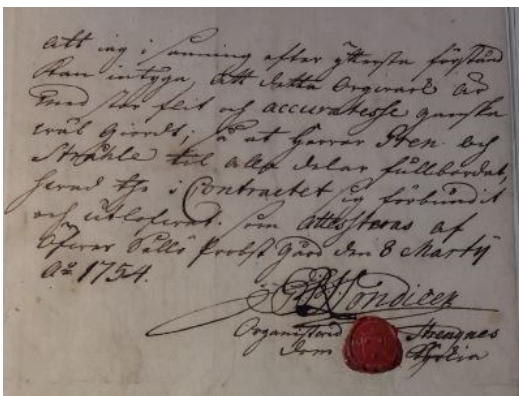 att jag i sanning efter yttersta förstånd
kan intyga, att detta Orgwärk är
med stor flit och accuratesse ganska
wäl giordt; så at Herrar Gren och
Stråhle til alla delar fullbordat,
hwad the i Contractet sig förbundit
och utlofwat. som attesteras af
Öfwer Sällö Probst Gård den 8 Martij
Aō 1754.
Organisten wid Strengnes
Dom Kyrkia